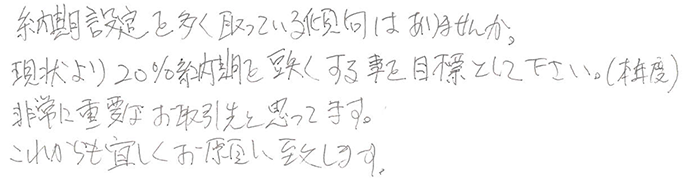 納期設定を多く取っている傾向はありませんか。
現状より20%納期を短くする事を目標として下さい。(本年度)
非常に重要なお取引先と思ってます。
これからも宜しくお願い致します。